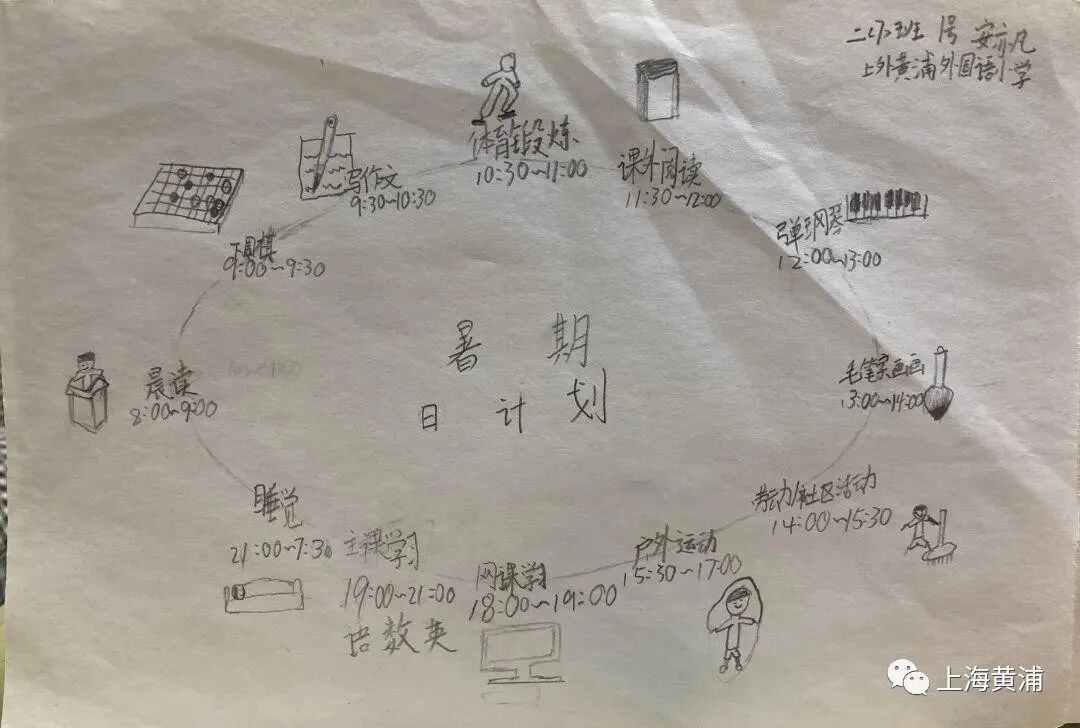 二(1)班 1号 安亦凡
上外黄浦外国语小学
体育锻炼
10:30~11:00
课外阅读
11:30~12:00
弹钢琴
12:00~13:00
毛笔画画
13:00~14:00
劳动/社区活动
14:00~15:30
户外运动
15:30~17:00
网课学习
18:00~19:00
主课学习
19:00~21:00
语数英
睡觉
21:00~7:30
晨读
8:00~9:00
下围棋
9:00~9:30
写作文
9:30~10:30
暑期
日计划
上海黄浦